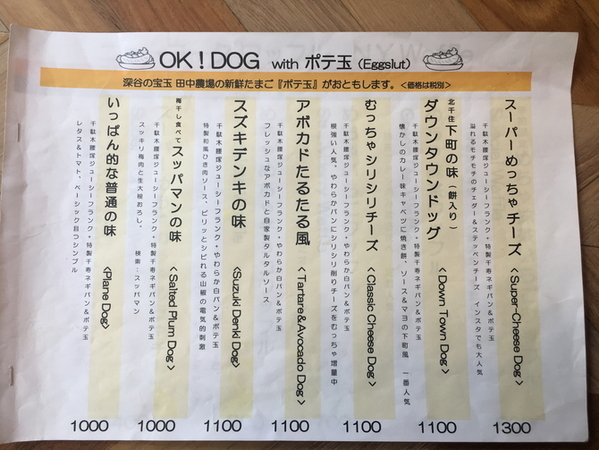 OK!DOG with ポテ玉 (Eggslut)
深谷の宝玉 田中農場の新鮮たまご『ポテ玉』がおともします。<価格は税別>
スーパーめっちゃチーズ <Super-Cheese Dog>
千駄木腰塚ジューシーフランク・特製千寿ネギパン&ポテ玉
溢れるモチモチのチェダー&ステッペンチーズ インスタでも大人気
1300
北千住 下町の味(餅入り)
ダウンタウンドッグ <Down Town Dog>
千駄木腰塚ジューシーフランク・特製千寿ネギパン&ポテ玉
懐かしのカレー味キャベツに焼き餅、ソース&マヨの下町風 一番人気
1100
むっちゃシリシリチーズ <Classic Cheese Dog>
千駄木腰塚ジューシーフランク・やわらか白パン&ポテ玉
根強い人気。やわらかパンにシリシリ削りチーズをむっちゃ増量中
1100
アボカドたるたる風 <Tartare&Avocado Dog>
千駄木腰塚ジューシーフランク・やわらか白パン&ポテ玉
フレッシュなアボカドと自家製タルタルソース
1100
スズキデンキの味 <Suzuki Denki Dog>
千駄木腰塚ジューシーフランク・やわらか白パン&ポテ玉
特製和風ひき肉ソース、ピリッとシビれる山椒の電気的刺激
1100
梅干し食べて スッパマンの味 <Salted Plum Dog>
千駄木腰塚ジューシーフランク・特製千寿ネギパン&ポテ玉
スッキリ梅肉と生大根おろし。 検索:スッパマン
1000
いっぱん的な普通の味 <Plane Dog>
千駄木腰塚ジューシーフランク・特製千寿ネギパン&ポテ玉
レタス&トマト、ベーシック且つシンプル
1000